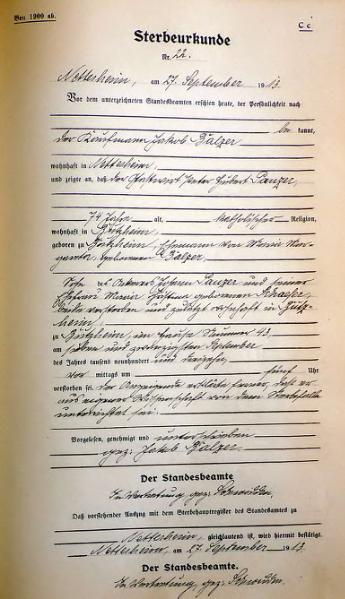 Von 1900 ab.
C c
Sterbeurkunde
Nr. 22.
Nettersheim, am 27. September 1913
Vor dem unterzeichneten Standesbeamten erschien heute, der Persönlichkeit nach
kannte,
der Kaufmann Jakob Balzer
wohnhaft in Nettersheim,
und zeigte an, daß der Peter Hubert
74 Jahre alt, katholischer Religion,
wohnhaft in
geboren zu Ehemann von Maria
geborenen Balzer
Sohn und seiner
Ehefrau Maria geborenen Schaefer,
beide verstorben und zuletzt wohnhaft in
zu im Hause Nummer 43,
am September
des Jahres tausend neunhundert und dreizehn,
mittags um fünf Uhr
verstorben sei. Der Anzeigende erklärte ferner, daß er
aus eigener Wissenschaft von dem Sterbefalle
unterrichtet sei.
Vorgelesen, genehmigt und unterschrieben
gez: Jakob Balzer.
Der Standesbeamte
In Vertretung gez.
Daß vorstehender Auszug mit dem Sterbehauptregister des Standesamtes zu
Nettersheim, gleichlautend ist, wird hiermit bestätigt.
Nettersheim, am 27. September 1913
Der Standesbeamte.
In Vertretung, gez.